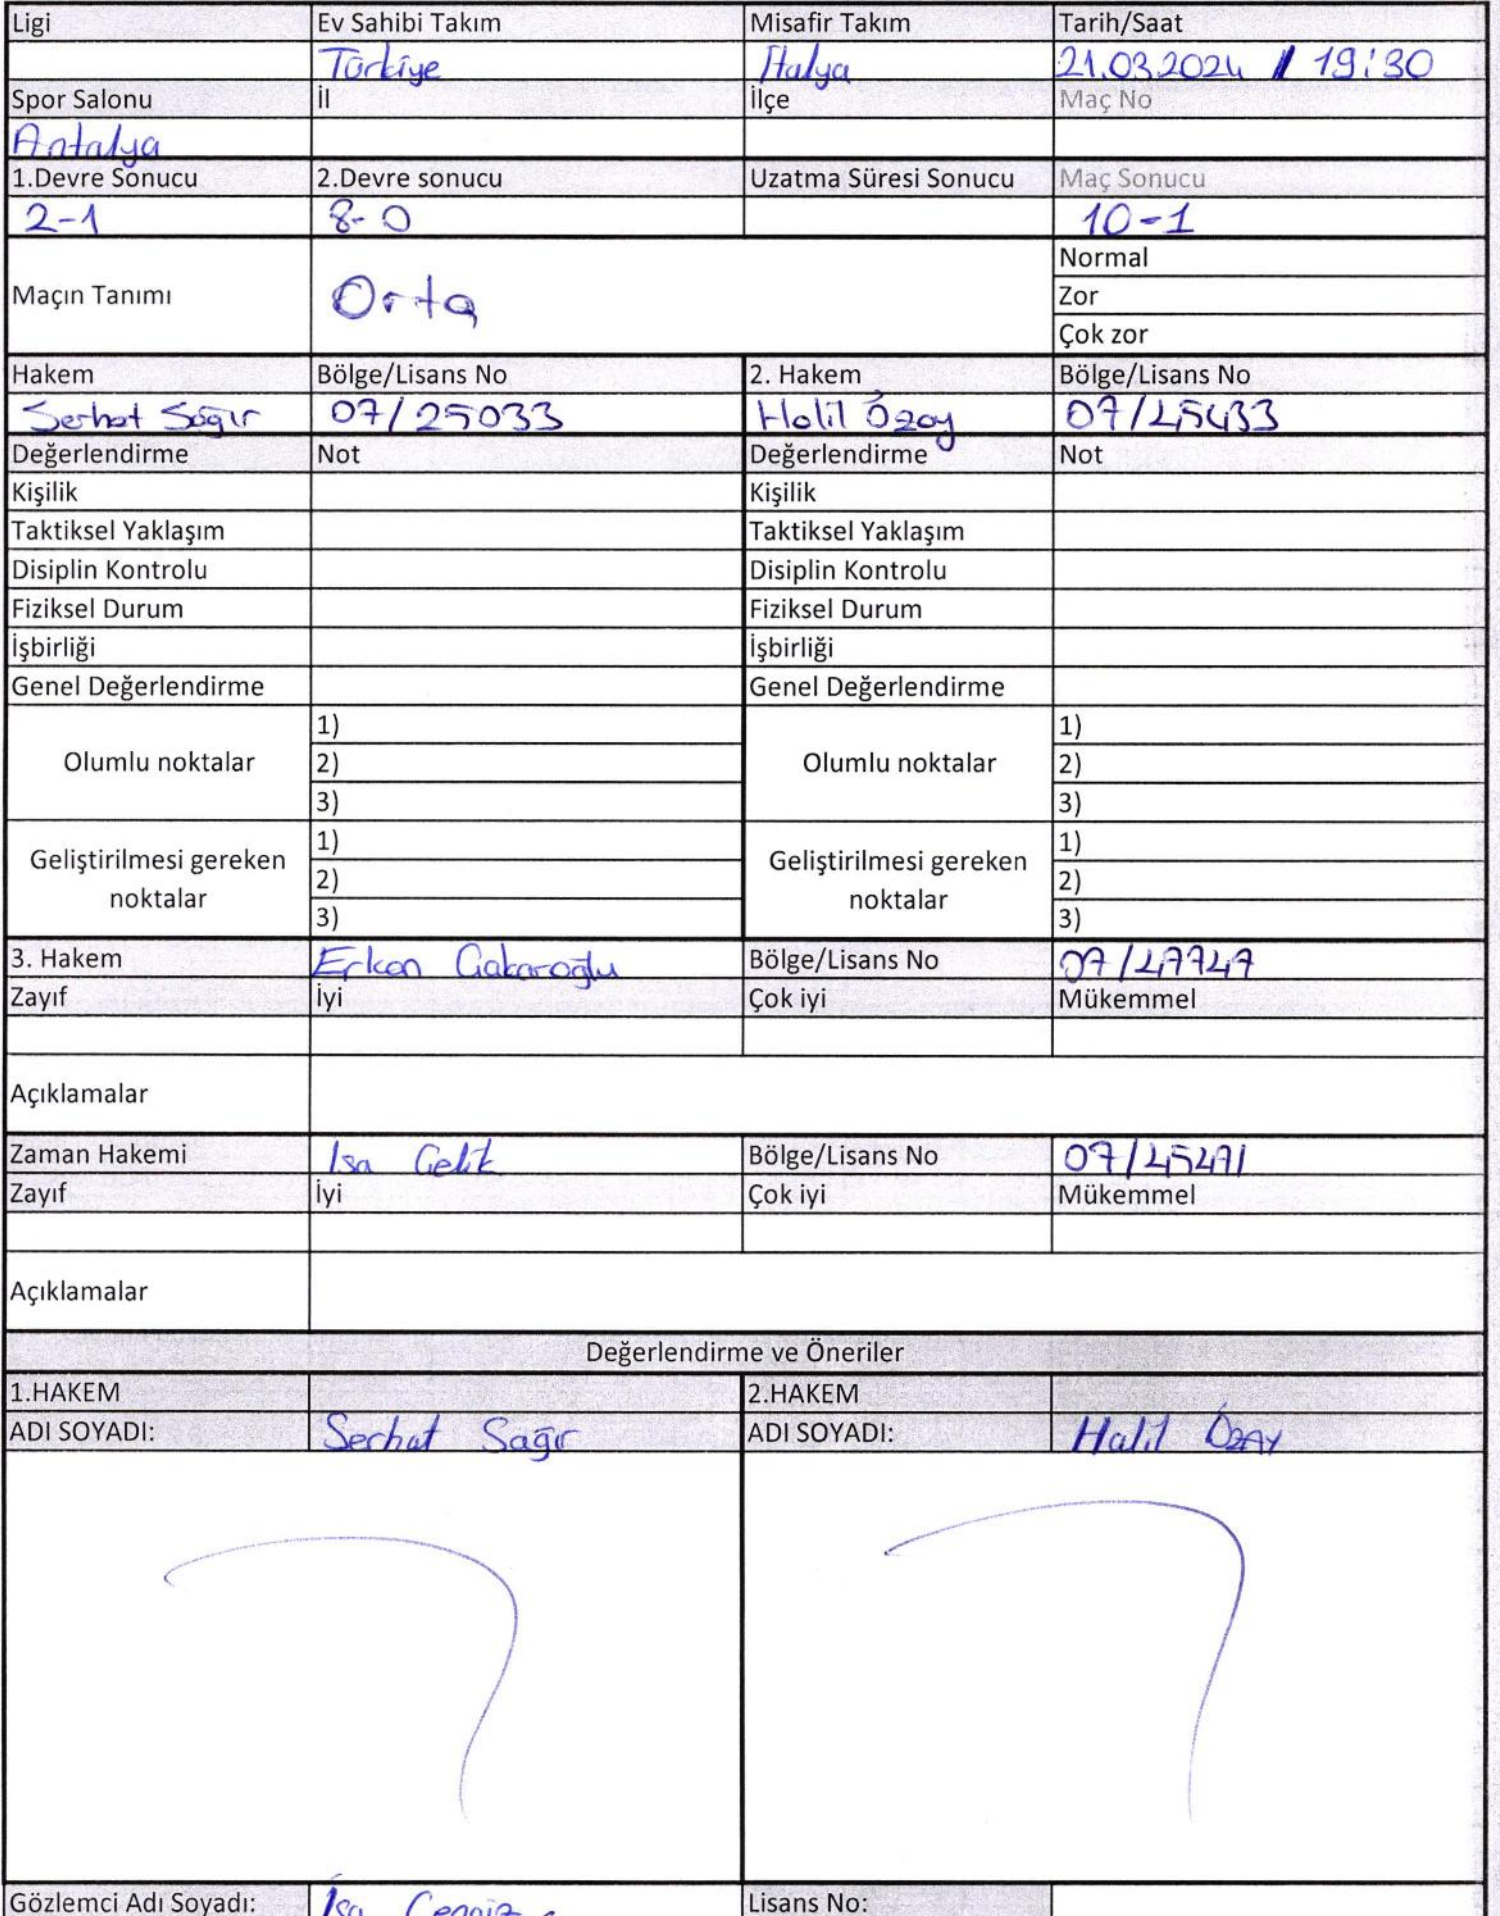 Ligi Ev Sahibi Takım Misafir Takım Tarih/Saat
Türkiye İtalya 21.03.2024 / 19:30
Spor Salonu İl İlçe Maç No
Antalya
1.Devre Sonucu 2.Devre sonucu Uzatma Süresi Sonucu Maç Sonucu
2-1 8-0 10-1
Normal
Maçın Tanımı Orta Zor
Çok zor
Hakem Bölge/Lisans No 2. Hakem Bölge/Lisans No
Serhat Sağır 07/25033 Halil Özay 07/45433
Değerlendirme Not Değerlendirme Not
Kişilik Kişilik
Taktiksel Yaklaşım Taktiksel Yaklaşım
Disiplin Kontrolu Disiplin Kontrolu
Fiziksel Durum Fiziksel Durum
İşbirliği İşbirliği
Genel Değerlendirme Genel Değerlendirme
1) 1)
Olumlu noktalar 2) Olumlu noktalar 2)
3) 3)
1) 1)
Geliştirilmesi gereken 2) Geliştirilmesi gereken 2)
noktalar 3) noktalar 3)
3. Hakem Erkan Bölge/Lisans No 07/47747
Zayıf İyi Çok iyi Mükemmel
Açıklamalar
Zaman Hakemi Isa Çelik Bölge/Lisans No 07/45471
Zayıf İyi Çok iyi Mükemmel
Açıklamalar
Değerlendirme ve Öneriler
1.HAKEM 2.HAKEM
ADI SOYADI: Serhat Sağır ADI SOYADI: Halil Özay
Gözlemci Adı Soyadı: İsa Lisans No: